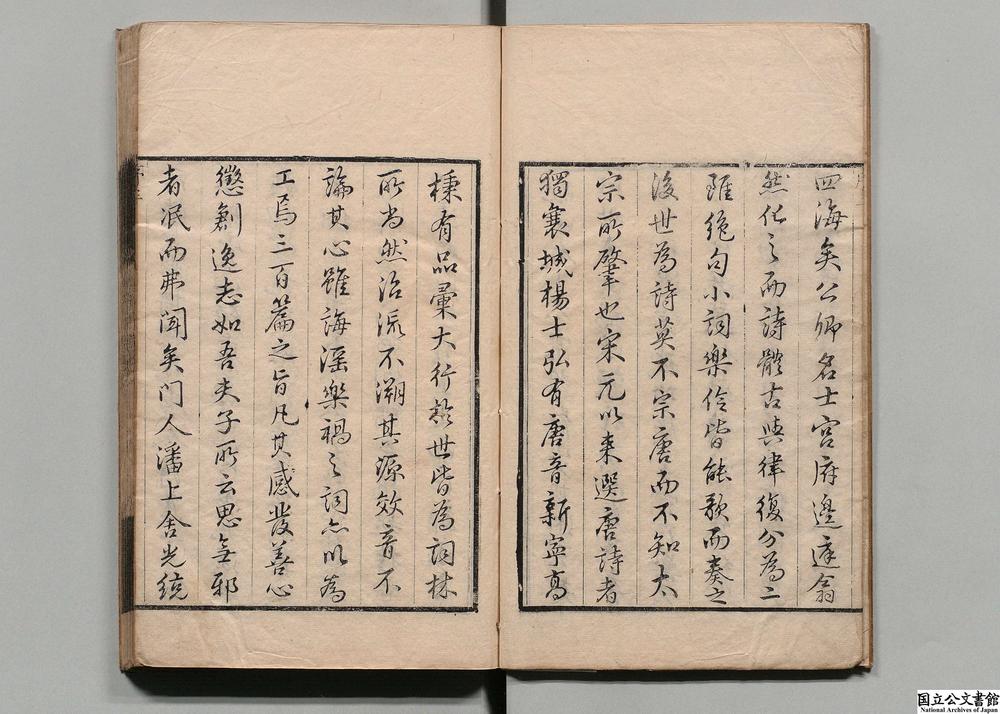 四海矣公卿名士宮府邊庭翕
然化之而詩體古與律復分為二
雖絶句小詞樂伶皆能歌而奏之
後世為詩莫不宗唐而不知太
宗所肇也宋元以來選唐詩者
獨襄城楊士弘有唐音新寧高
棅有品彙大行於世皆為詞林
所尚然沿流不溯其源效音不
論其心雖誨淫樂禍之詞亦以為
工焉三百篇之旨凡其感發善心
懲創逸志如吾夫子所云思無邪
者泯而弗聞矣門人潘上舍光統
国立公文書館
National Archives of Japan